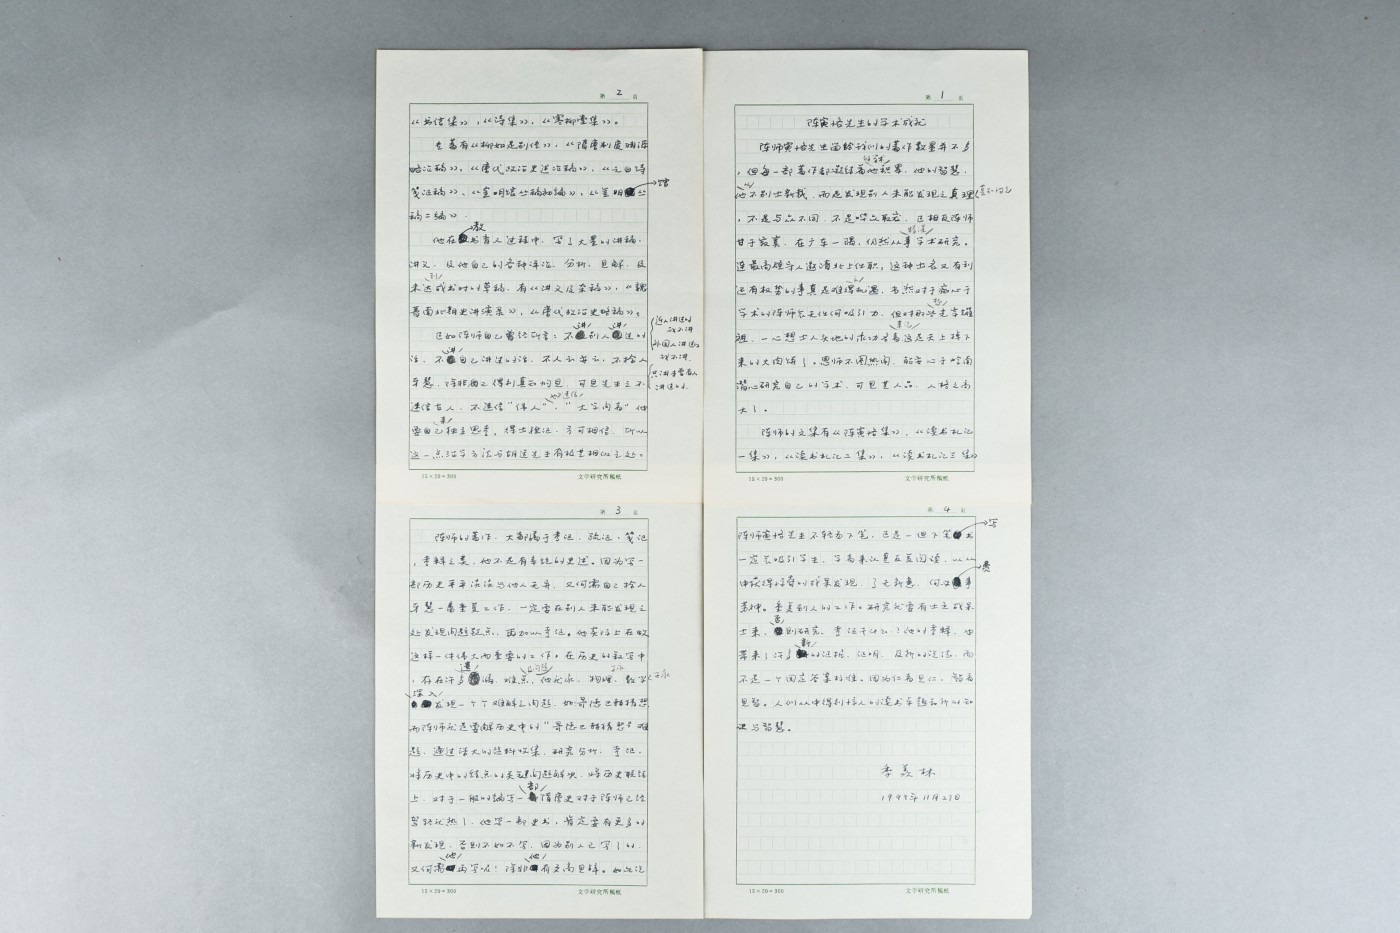 第 1 页
陈寅恪先生的学术成就
陈师寅恪先生留给我们的著作数量并不多
,但每一部著作都凝结着他积累、他的智慧,
他不别士新裁,而是发现别人未能发现之真理
,不是与众不同,不是哗众取宠,正相反陈师
甘于寂寞,在广东一隅,仍然从事学术研究。
连最高领导人邀请北上任职,这种士名又有利
还有权势的事真是难得机遇,当然对于痴心于
学术的陈师是无任何吸引力,
想,一心想士人头地的
来的大肉饼了。恩师不图热闹,能安心于岭南
潜心研究自己的学术,可见其人品、人格之高
大!。
陈师的文集有《陈寅恪集》,《读书札记
一集》,《读书札记二集》,《读书札记三集》
15×20=300
文学研究所稿纸
第 2 页
《书信集》,《诗集》,《寒柳堂集》。
专著有《柳如是别传》,《隋唐制度渊源
略论稿》,《唐代政治史述论稿》,《元白诗
笺证稿》、《金明馆丛稿初编》,《金明 丛
馆
稿二编》.
教
他在 书育人过程中,写了大量的讲稿,
讲义,及他自己的各种评论,分析,见解,及
未达成书时的草稿,有《讲义及杂稿》,《魏
晋南北朝史讲演录》,《唐代政治史略稿》。
讲 讲
正如陈师自己曾经所言:不 别人 过的
近人讲过的
我不讲
外国人讲过的
我不讲.
讲
话,不 自己讲过的话,不人云亦云,不拾人
只讲未曾有人
讲过的.
牙慧,除非自己得到真正的见,可见先生之不
迷信古人,不迷信“伟人”,“大学问者”他
要自己独立思考,得士独论,方可相信,所以
这一点治学方法与胡适先生有极其相似之处。
15×20=300
文学研究所稿纸
第 3 页
陈师的著作,大部属于考证,疏证,笺证
,考释之类,他不是有系统的史述。因为写一
部历史平平淡淡与他人无异,又何需自己拾人
牙慧一番重复工作,一定要在别人未能发现之
处发现问题疑点,再加以考证。他实际上在做
这样一件伟大而重要的工作。在历史的叙写中
遗
,存在许多 漏,难点,
深入
发现一个个难解之问题,如哥德巴赫猜想
而陈师就是要解历史中的“哥德巴赫猜想”难
题,通过浩大的资料收集,研究分析,考证,
将历史中的结点的关键问题解决,将历史联结
部
上,对于一般的编写一 隋唐史对于陈师已经
驾轻就熟了,他写一部史书,肯定要有更多的
新发现,否则不如不写,因为别人已写了的,
他 他
又何需 再写呢!除非 有更高见解。如此说
15×20=300
文学研究所稿纸
第 4 页
陈师寅恪先生不轻易下笔,已是一但下笔 书
写
一定会吸引学生,学者来认真反复阅读,从
中获得 的成果发现,了无新意,何必 事
费
劳神。重复别人的工作。研究就要有士之成果
否
士来, 则研究、考证干什么?他的考释,也
新
带来了许多 的证据,证明,及新的说法,而
不是一个固定答案标准。因为仁者见仁,智者
见智。人们从中得到惊人的读书乐趣和所以知
识与智慧。
季羡林
15×20=300
文学研究所稿纸